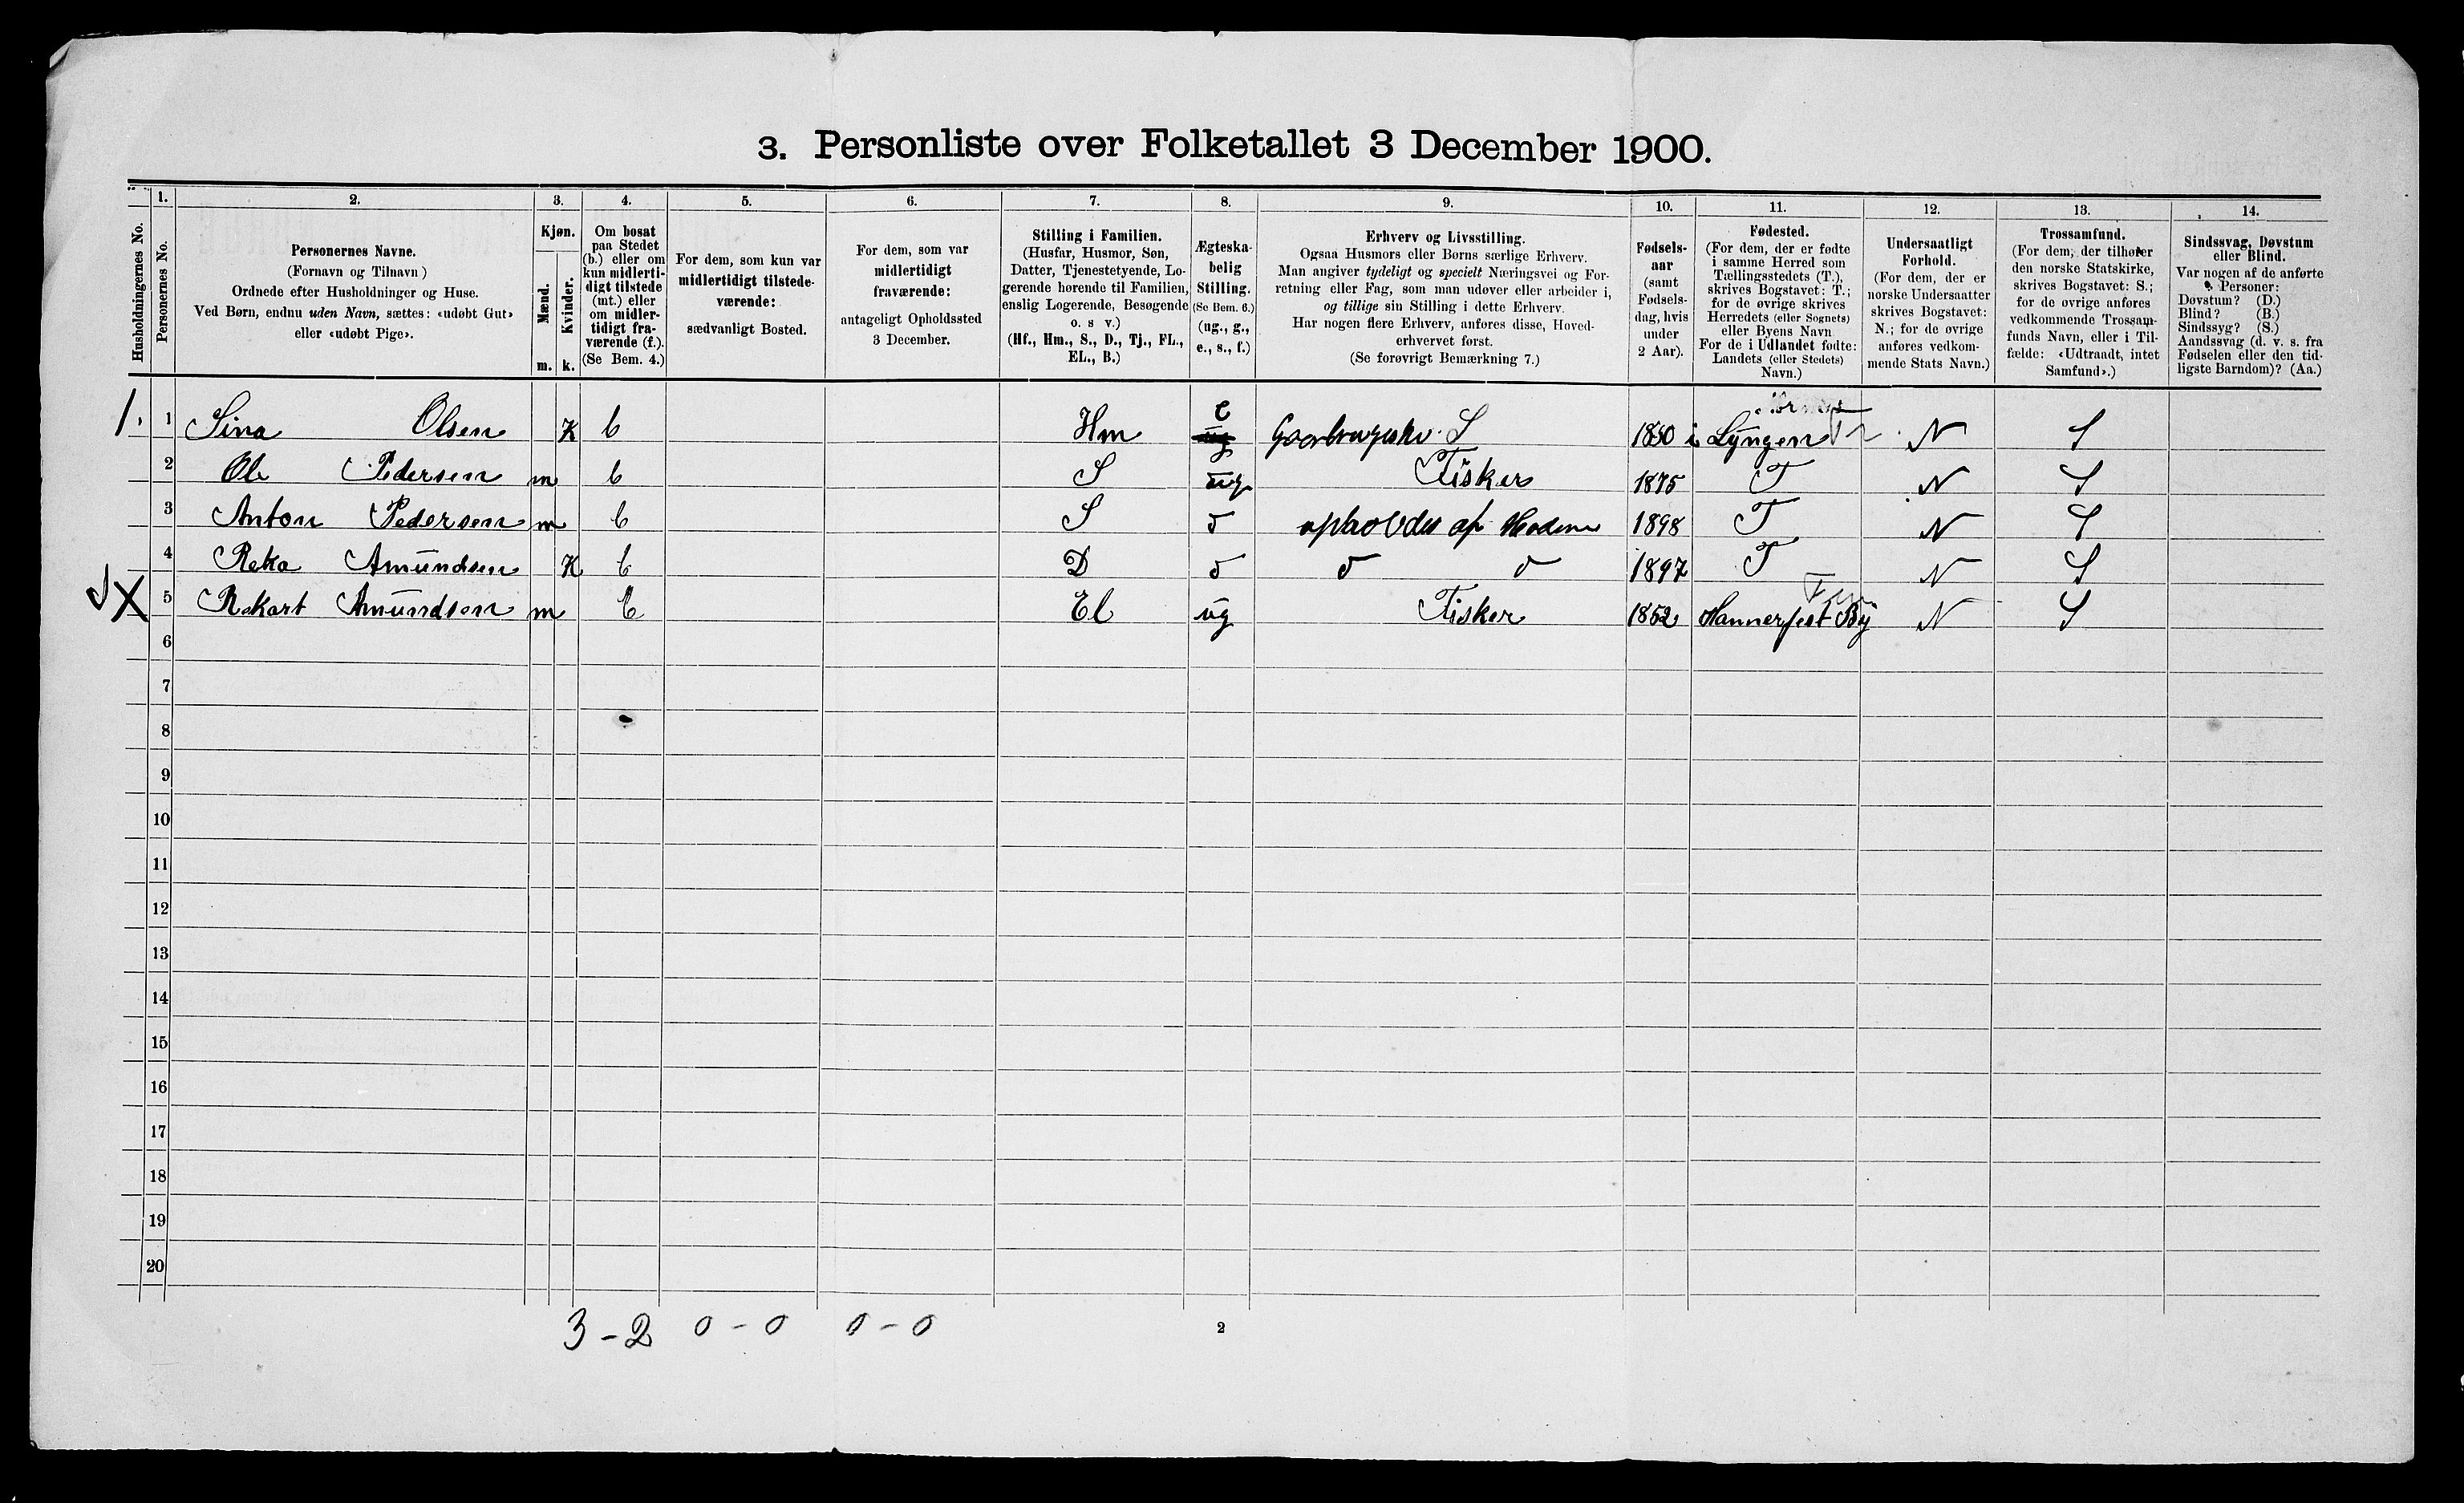 3. Personliste over Folketallet 3 December 1900.
Husholdningernes No.
1.
Personernes No.
2.
Personernes Navne.
(Fornavn og Tilnavn)
Ordnede efter Husholdninger og Huse.
Ved Børn, endnu uden Navn, sættes: «udøbt Gut»
eller «udøbt Pige».
3.
Kjøn.
Mænd.
Kvinder.
m. k.
4.
Om bosat
paa Stedet
(b.) eller om
kun midlerti-
digt tilstede
(mt.) eller
om midler-
tidigt fra-
værende (f.).
(Se Bem. 4.)
5.
For dem, som kun var
midlertidigt tilstede-
værende:
sædvanligt Bosted.
6.
For dem, som var
midlertidigt
fraværende:
antageligt Opholdssted
3 December.
7.
Stilling i Familien.
(Husfar, Husmor, Søn,
Datter, Tjenestetyende, Lo-
gerende hørende til Familien,
enslig Logerende, Besøgende
o. s v.)
(Hf., Hm., S., D., Tj., FL.,
EL., B.)
8.
Ægteska-
belig
Stilling.
(Se Bem. 6.)
(ug., g.,
e., s., f.)
9.
Erhverv og Livsstilling.
Ogsaa Husmors eller Børns særlige Erhverv.
Man angiver tydeligt og specielt Næringsvei og For-
retning eller Fag, som man udøver eller arbeider i,
og tillige sin Stilling i dette Erhverv.
Har nogen flere Erhverv, anføres disse, Hoved-
erhvervet først.
(Se forøvrigt Bemærkning 7.)
10.
Fødsels-
aar
(samt
Fødsels-
dag, hvis
under
2 Aar).
11.
Fødested.
(For dem, der er fødte
i samme Herred som
Tællingsstedets (T.),
skrives Bogstavet: T.;
for de øvrige skrives
Herredets (eller Sognets)
eller Byens Navn
For de i Udlandet fødte:
Landets (eller Stedets)
Navn.)
12.
Undersaatligt
Forhold.
(For dem, der er
norske Undersaatter
skrives Bogstavet:
N.; for de øvrige
anføres vedkom-
mende Stats Navn.)
13.
Trossamfund.
(For dem, der tilhører
den norske Statskirke,
skrives Bogstavet: S.;
for de øvrige anføres
vedkommende Trossam-
funds Navn, eller i Til-
fælde: «Udtraadt, intet
Samfund».)
14.
Sindssvag, Døvstum
eller Blind.
Var nogen af de anførte
Personer:
Døvstum? (D.)
Blind? (B.)
Sindssyg? (S.)
Aandssvag (d. v. s. fra
Fødselen eller den tid-
ligste Barndom)? (Aa.)
1. 1 Sina Olsen K b Hm e Gaardbrugerske S 1850 i Lyngen N S
2 Ole Pedersen m b S ug Fisker 1875 T N S
3 Anton Pedersen m b S d opholdes af Moderen 1898 T N S
4 Reka Amundsen K b D d d d 1897 T N S
X 5 Rekart Amundsen m b El ug Fisker 1852 Hannerfest By N S
6
7
8
9
10
11
12
13
14
15
16
17
18
19
20
3 - 2 0 - 0 0 - 0
2